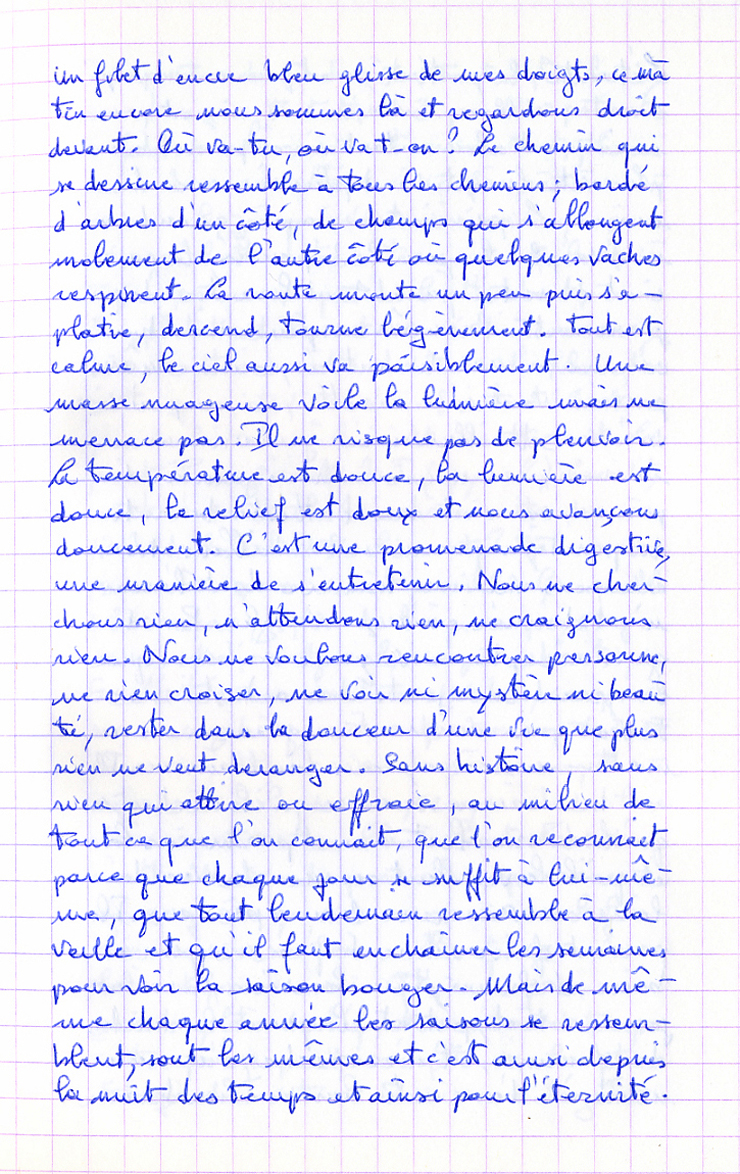 un filet d'encre bleu glisse de mes doigts, ce ma
tin encore nous sommes là et regardons droit
devant. Où va-tu, où va t-on? Le chemin qui
se dessine ressemble à tous les chemins; bordé
d'arbres d'un côté, de champs qui s'allongent
molement de l'autre côté où quelques vaches
respirent. La route monte un peu puis s'a-
platie, descend, tourne légèrement. Tout est
calme, le ciel aussi va paisiblement. Une
masse nuageuse voile la lumière mais ne
menace pas. Il ne risque pas de pleuvoir.
La température est douce, la lumière est
douce, le relief est doux et nous avançons
doucement. C'est une promenade digestive,
une manière de s'entretenir. Nous ne cher-
chons rien, n'attendons rien, ne craignons
rien. Nous ne voulons rencontrer personne,
ne rien croiser, ne voir ni mystère ni beau
té, rester dans la douceur d'une vie que plus
rien ne veut deranger. Sans histoire, sans
rien qui attire ou effraie, au milieu de
tout ce que l'on connait, que l'on reconnait
parce que chaque jour se suffit à lui-mê-
me, que tout lendemain ressemble à la
veille et qu'il faut enchainer les semaines
pour voir la saison bouger. Mais de mê-
me chaque année les saisons se ressem-
blent, sont les mêmes et c'est ainsi depuis
la nuit des temps et ainsi pour l'éternité.